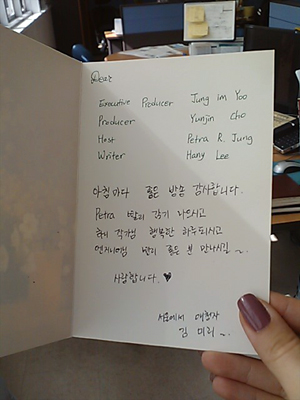 Dear
Executive Producer Jung Im Yoo
Producer Yunjin Cho
Host Petra R. Jung
Writer Hany Lee
아침마다 좋은 방송 감사합니다.
Petra 빨리 감기 나으시고
작가님 행복한 하루되시고
빨리 좋은 분 만나시길 ~.
사랑합니다. ♥
애청자
김 미리 ~.